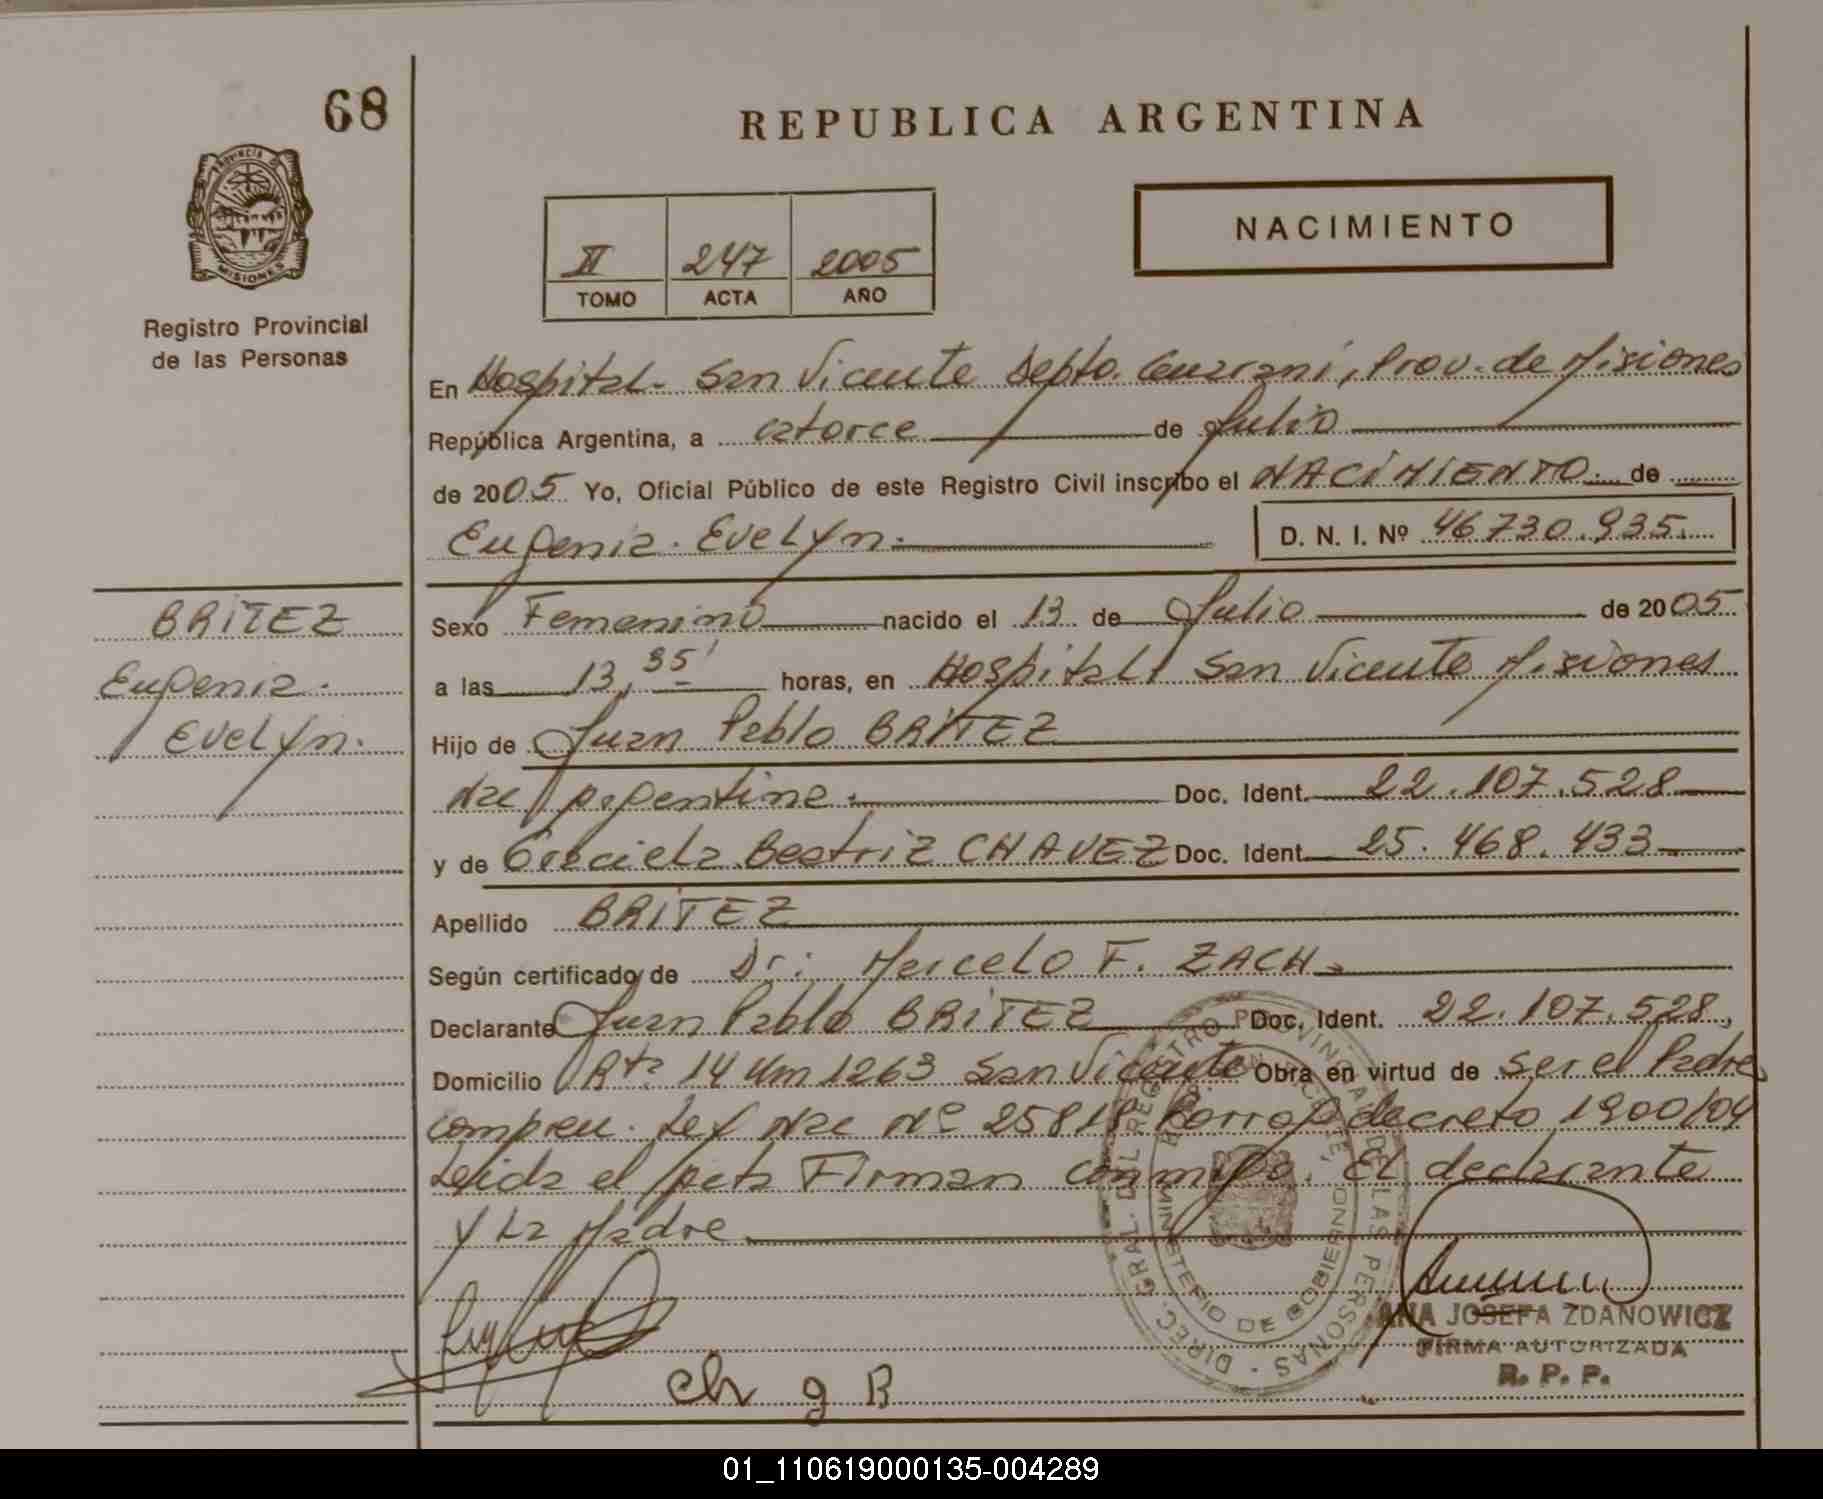 68
REPUBLICA ARGENTINA
PROVINCIA DE
MISIONES
Registro Provincial
de las Personas
NACIMIENTO
II 247 2005
TOMO ACTA AÑO
En Hospital. San Vicente Depto. Guaraní, Prov. de Misiones
República Argentina, a catorce de Julio
de 2005 Yo, Oficial Público de este Registro Civil inscribo el NACIMIENTO de
Eugenia. Evelyn. D. N. I. Nº 46730.935.
BRITEZ
Eugenia.
Evelyn.
Sexo Femenino nacido el 13 de Julio de 2005
a las 13,35' horas, en Hospital San Vicente Misiones
Hijo de Juan Pablo BRITEZ
Nac Argentina. Doc. Ident. 22.107.528
y de Graciela Beatriz CHAVEZ Doc. Ident. 25.468.433
Apellido BRITEZ
Según certificado de Dr: Marcelo F. ZACH
Declarante Juan Pablo BRITEZ Doc. Ident. 22.107.528,
Domicilio Rta 14 Km 1263 San Vicente Obra en virtud de ser el Padre
Ley Nac Nº 25818 decreto 1900/04
Leida el Acta Firman conmigo. El declarante
y La Madre
DIREC. GRAL. DEL REGISTRO PROVINCIAL DE LAS PERSONAS
MINISTERIO DE GOBIERNO
SAN VICENTE,
Ch g B
ANA JOSEFA ZDANOWICZ
FIRMA AUTORIZADA
R. P. P.
01_110619000135-004289